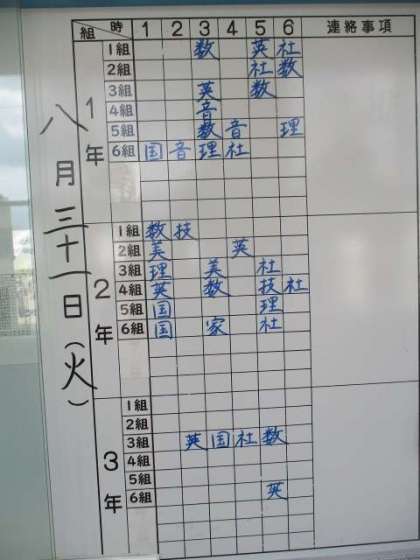 八月三十一日(火)
組 時 1 2 3 4 5 6 連絡事項
1年
1組 数 英 社
2組 社 数
3組 英 数
4組 音
5組 数 音 理
6組 国 音 理 社
2年
1組 数 技
2組 美 英
3組 理 美 社
4組 英 数 技 社
5組 国 理
6組 国 家 社
3年
1組
2組
3組 英 国 社 数
4組
5組
6組 英